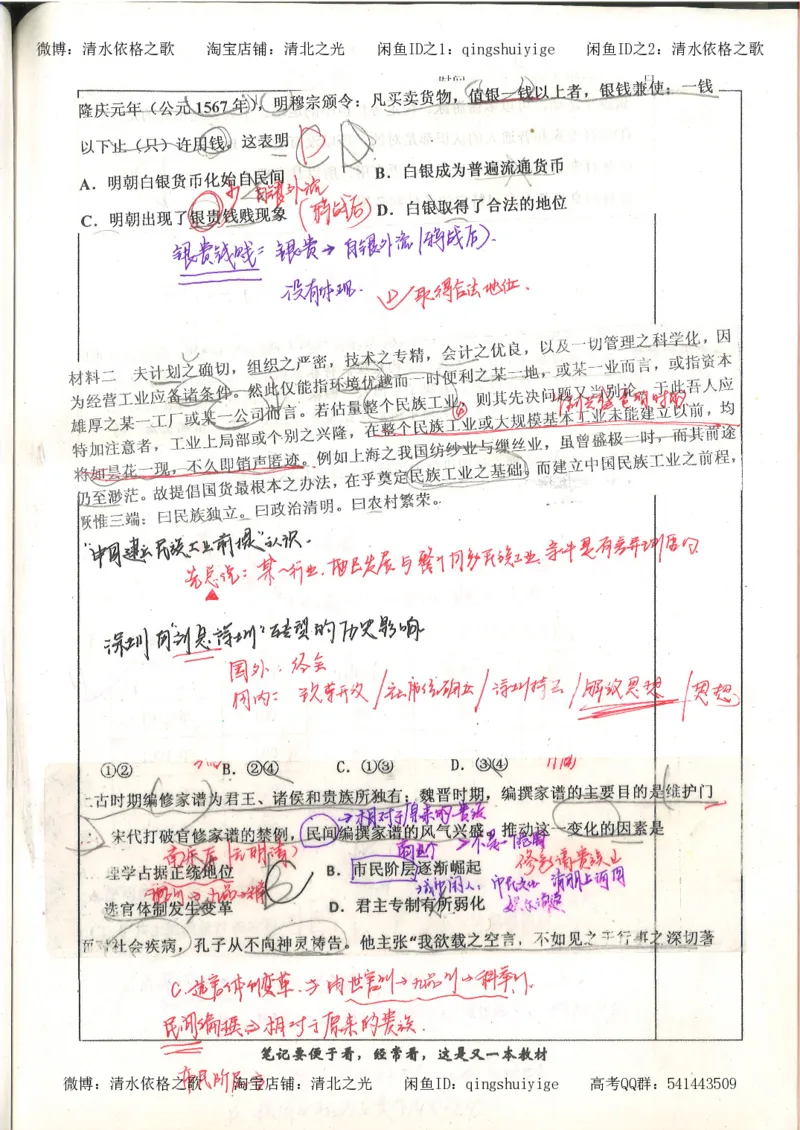 微博：清水依格之歌 淘宝店铺：清北之光 闲鱼ID之1：qingshuiyige 闲鱼ID之2：清水依格之歌
隆庆元年（公元1567年），明穆宗颁令：凡买卖货物，值银一钱以上者，银钱兼使；一钱
以下止（只）许用钱。这表明
A．明朝白银货币化始自民间 B．白银成为普遍流通货币
白银外流
C．明朝出现了银贵钱贱现象 （鸦战后） D．白银取得了合法的地位
银贵钱贱= 银贵→白银外流（鸦战后）．
没有体现． 取得合法地位．
材料二 夫计划之确切，组织之严密，技术之专精，会计之优良，以及一切管理之科学化，因
为经营工业应备诸条件。然此仅能指环境优越而一时便利之某一地，或某一业而言，或指资本
雄厚之某一工厂或某一公司而言。若估量整个民族工业，则其先决问题又当别论。于此吾人应
特加注意者，工业上局部或个别之兴隆，在整个民族工业或大规模基本工业未能建立以前，均
将如昙花一现，不久即销声匿迹。例如上海之我国纺纱业与缫丝业，虽曾盛极一时，而其前途
仍至渺茫。故提倡国货最根本之办法，在乎奠定民族工业之基础。而建立中国民族工业之前程，
厥惟三端：曰民族独立。曰政治清明。曰农村繁荣。
"中国建立民族工业前提"认识．
先总说：某一行业、地区发展与整个国家民族工业
深圳由"深圳"转型的历史影响
国外：
国内：改革开放/ /深圳特区/解放思想/思想
①② B．②④ C．①③ D．③④
古时期编修家谱为君王、诸侯和贵族所独有；魏晋时期，编撰家谱的主要目的是维护门
→相对于原来的贵族
宋代打破官修家谱的禁例，民间编撰家谱的风气兴盛。推动这一变化的因素是
南宋后（元明清）
理学占据正统地位 B．市民阶层逐渐崛起
清明上河图
选官体制发生变革 D．君主专制有所弱化
社会疾病，孔子从不向神灵祷告。他主张“我欲载之空言，不如见之于行事之深切著
C．选官体制变革．为由世官制→九品制→科举制．
民间编撰⇒相对于原来的贵族．
笔记要便于看，经常看，这是又一本教材
市民阶层
微博：清水依格之歌 淘宝店铺：清北之光 闲鱼ID：qingshuiyige 高考QQ群：541443509